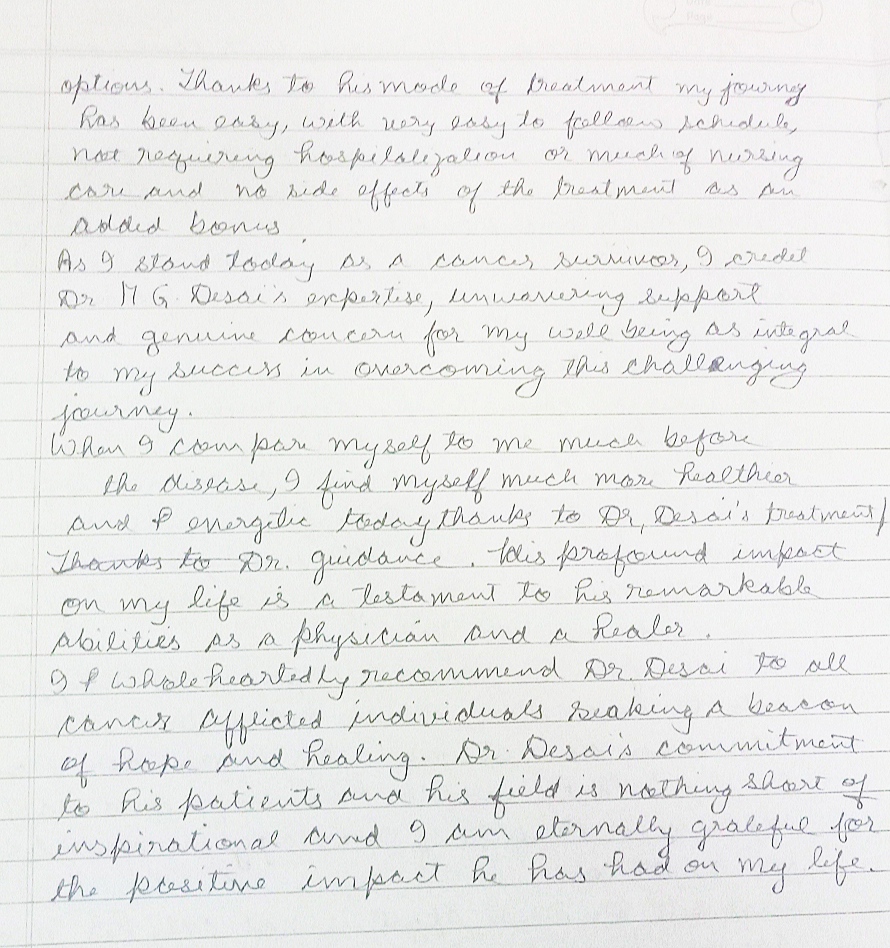 options. Thanks to his mode of treatment my journey
has been easy, with very easy to follow schedule,
not requiring hospitalization or much of nursing
care and no side effects of the treatment as an
added bonus.
As I stand today as a cancer survivor, I credit
Dr M G. Desai's expertise, unwavering support
and genuine concern for my well being as integral
to my success in overcoming this challenging
journey.
When I compare myself to me much before
the disease, I find myself much more healthier
and energetic today thanks to Dr, Desai's treatment/
Thanks to Dr. guidance. His profound impact
on my life is a testament to his remarkable
abilities as a physician and a healer.
I wholeheartedly recommend Dr. Desai to all
cancer afflicted individuals seaking a beacon
of hope and healing. Dr. Desai's commitment
to his patients and his field is nothing short of
inspirational and I am eternally grateful for
the positive impact he has had on my life.